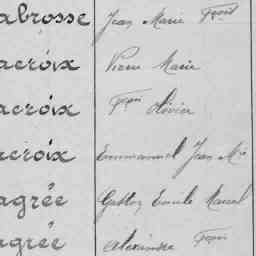 abrosse Jean Marie Frois
acroix Pierre Marie
acroix Frois Olivier
acroix Emmanuel Jean Mie
agrée Gaston Emile Marcel
agrée Alexandre Frois